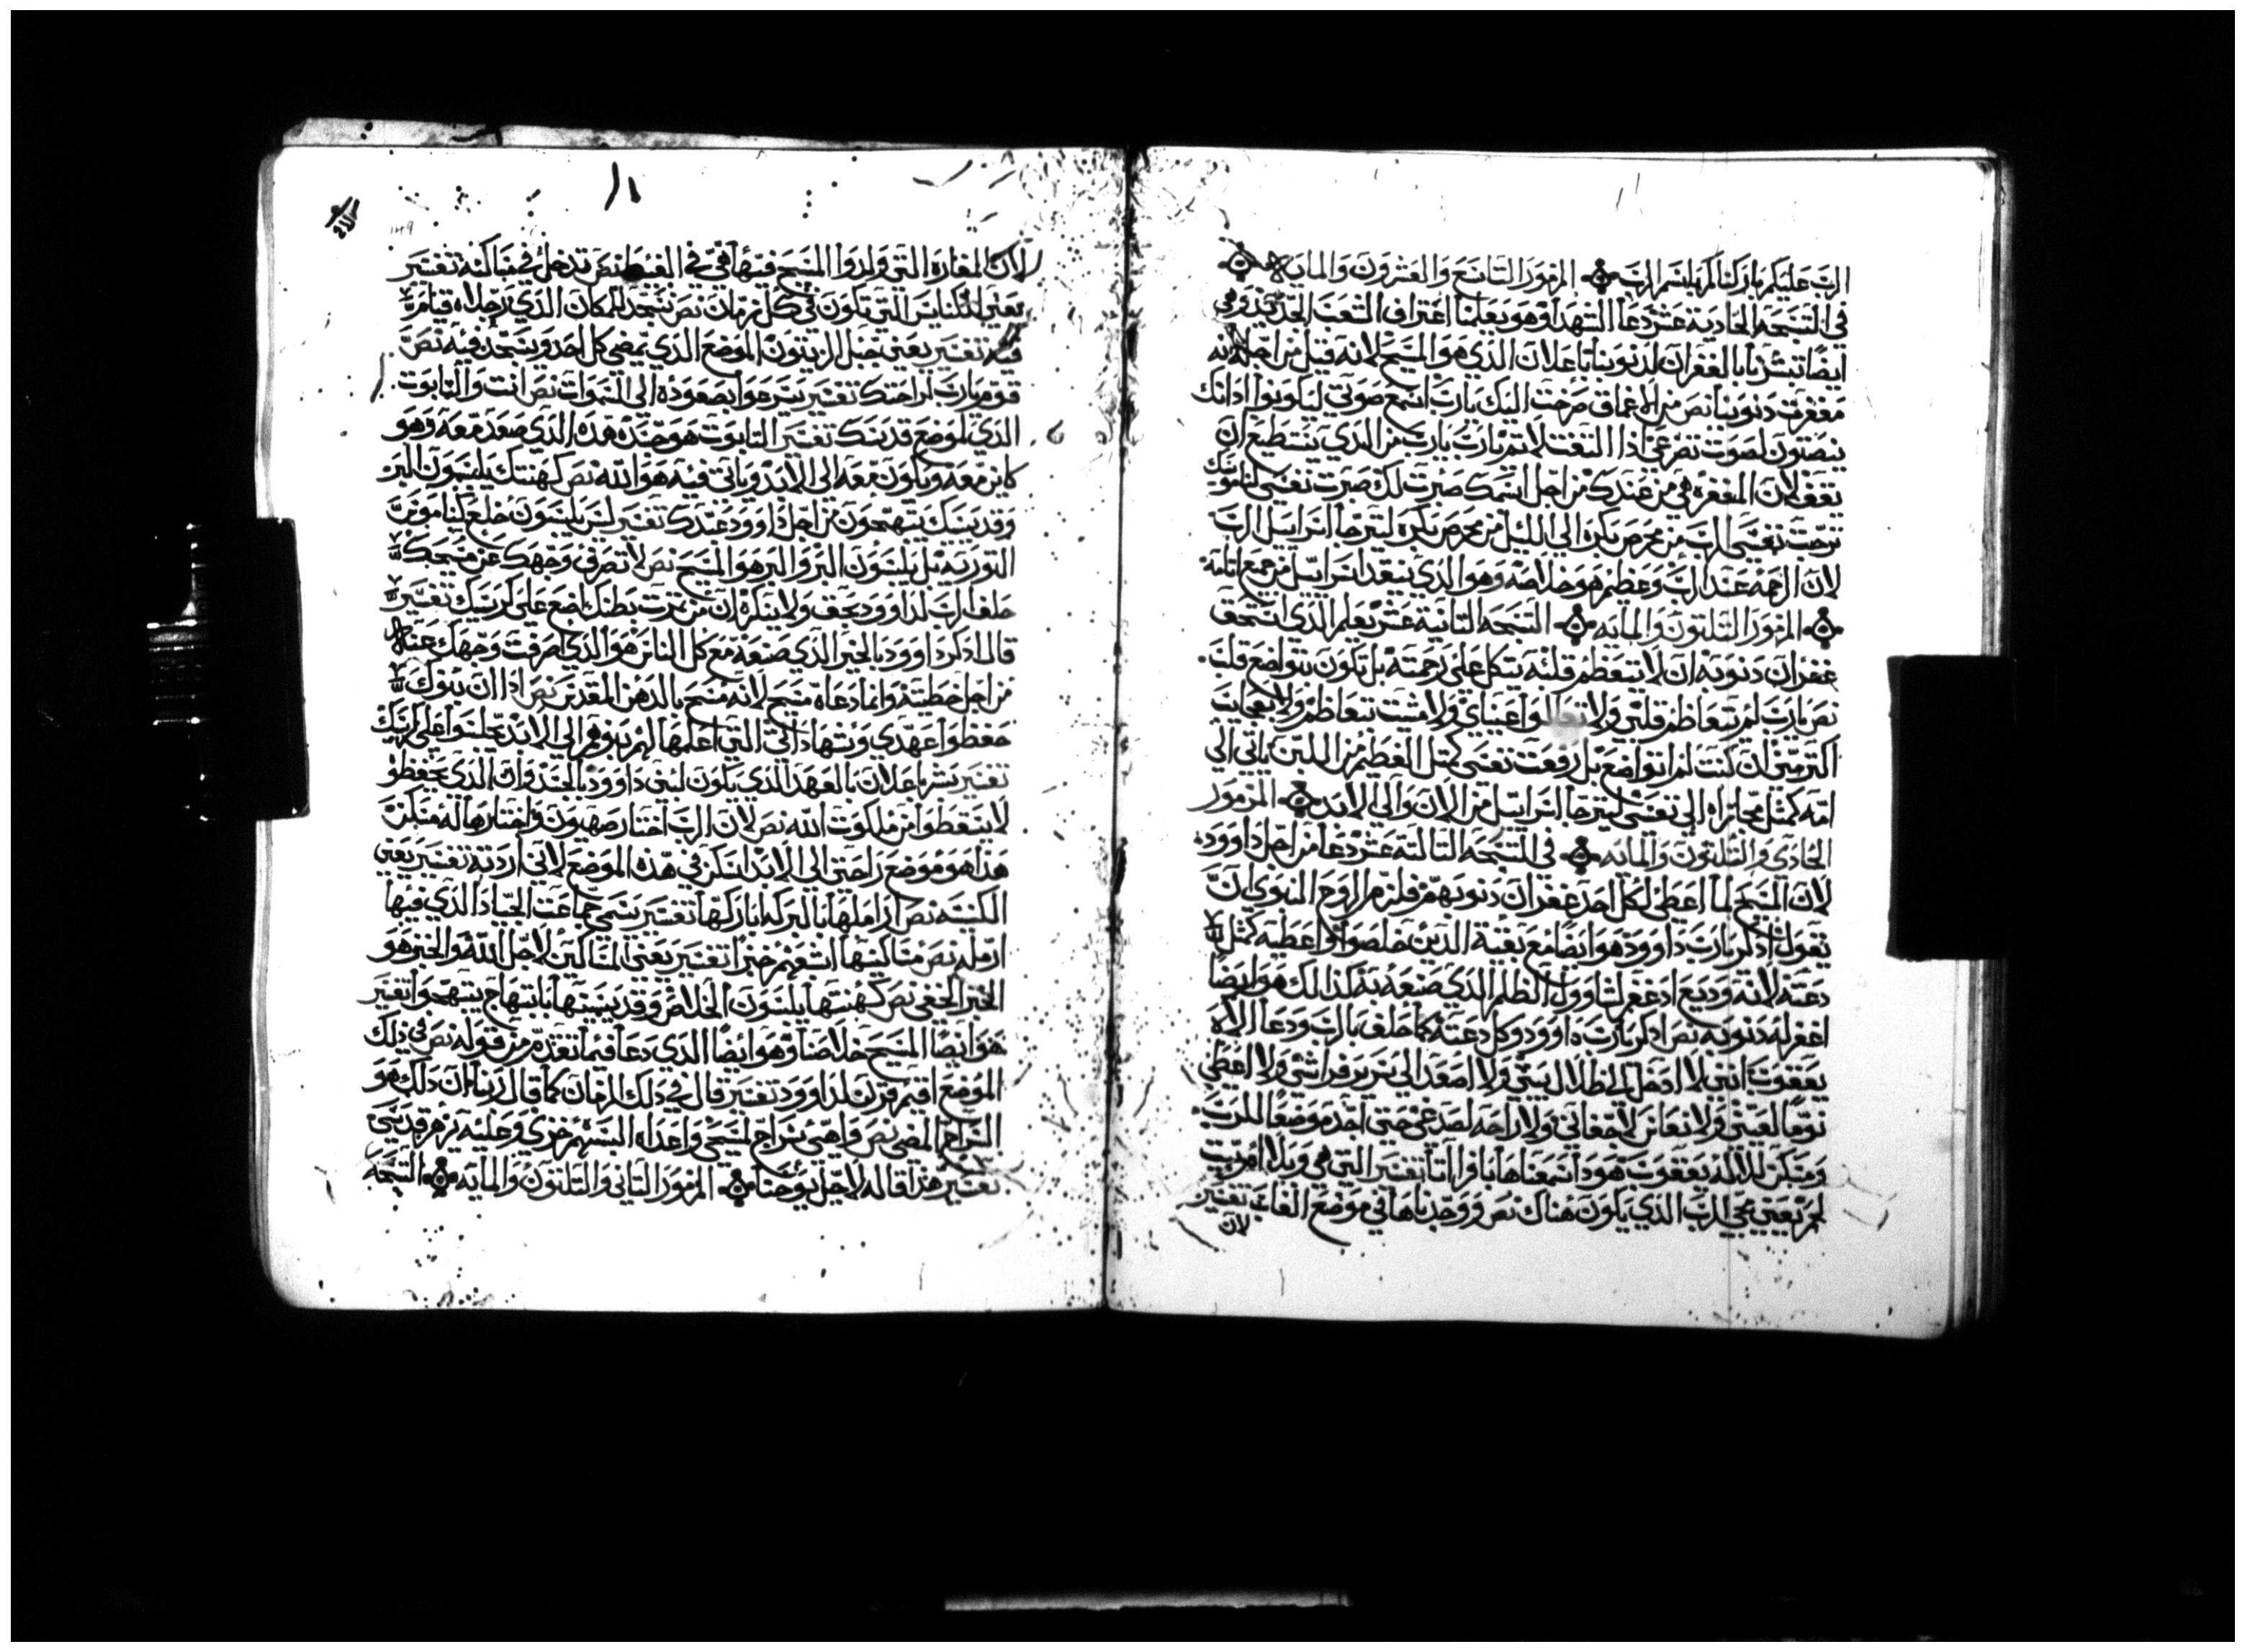 الرب عليكم باركناكم باسم الرب المزمور التاسع والعشرون والمايه
في التسبحه الحاديه عشر دعا الشهدا وهو يعلمنا اعتراف الشعب الجديد وهي
ايضا تبشرنا بالغفران لدنوبنا باعلان الذي هو المسيح لانه قيل من اجله انه
مغفرت دنوبنا نص من الاعماق صرخت اليك يارب اسمع صوتي ليكونوا ادانك
ينصتون لصوت تضرعي ادا التفت لاتم يارب يارب من الذي يستطيع ان
يقف لان المغفره هي من عندك من اجل اسمك صبرت لك صبرت نفسي لناموسك
ترجت نفسي الرب من محرص بكره الى الليل من محرص بكره ليترجا اسراييل الرب
لان الرحمه عند الرب وعظيم هو خلاصه وهو الذي ينقد اسراييل من جميع اتامه
المزمور التلتون والمايه التسبحه التانية عشر يعلم الذي استحق
غفران دنوبه ان لا يتعظم قلبه يتكل على رحمته بل تكون بتواضع قلب
نص يارب لم يتعاظم قلبي ولا عيناي ولا مشت بتعاظم ولا بعجايب
اكتر مني ان كنت لم اتواضع بل رفعت نفسي كمتل الفطيم من اللبن ياتي الي
امه كمتل مجازاه الي نفسي ليترجا اسراييل من الان والى الابد المزمور
الحادي والتلتون والمايه في التسبحه التالته عشر دعا من اجل داوود
لان المسيح لما اعطى لكل احد غفران دنوبهم فلزم الروح النبوي ان
يقول ادكر يارب داوود هو ايضا مع بقية الدين خلصوا واعطيه كمتل
دعته لانه وديع اد غفر لشاوول الظلم الذي صنعه به كذالك هو ايضا
اغفر له دنوبه نص ادكر يارب داوود وكل دعته كما حلف بالرب ودعا الاه
يعقوب انني لا ادخل الى ظلال بيتي ولا اصعد الى سرير فراشي ولا اعطي
نوما لعيني ولا نعاس لاجفاني ولا راحه لصدغي حتى اجد موضعا للرب
ومسكن للاله يعقوب هودا سمعناها بافراتا تفسير التي هي وبلا امو بيت
لحم يعني مجي الرب الذي يكون هناك نص ووجدناها في موضع الغاب تفسير
لان
لان المغاره التي ولدوا المسيح فيها هي في الغيط نص ندخل في مساكنه تفسير
يعني الكنايس التي تكون في كل زمان نص نسجد للمكان الذي رجلاه قيام
فيه تفسير يعني جبل الزيتون الموضع الذي يمضي كل احد ويسجد فيه نص
قوم يارب لراحتك تفسير يسرعوا بصعوده الى السموات نص انت والتابوت
الذي لموضع قدسك تفسير التابوت هو جسده هذه الذي صعد معه وهو
كاين معه ويكون معه الى الابد وياتي فيه هو الله نص كهنتك يلبسون البر
وقديسيك يبتهجون من اجل داوود عبدك تفسير ليس يلبسون خلع لناموس
التوريه بل يلبسون البر والبر هو المسيح نص لا تصرف وجهك عن مسيحك
حلف الرب لداوود بحق ولا ينكره ان من تمرت بطنك اضع على كرسيك تفسير
قال ادكر داوود بالخير الذي صنعه مع كل الناس هو الذي صرفت وجهك عنه
من اجل خطيته وانما دعاه مسيح لانه مسح بالدهن المقدس نص ادا ان بنوك
حفظوا عهدي وشهاداتي التي اعلمها لهم بنوهم الى الابد يجلسوا على كرسيك
تفسير بشر باعلان بالعهد الذي يكون لبني داوود بالجسد وان الذي يحفظو
لا يسقطوا من ملكوت الله نص لان الرب اختار صهيون واختارها له مسكن
هذا هو موضع راحتي الى الابد اسكن في هذه الموضع لاني اردته تفسير يعني
الكنيسه نص اراملها بالبركه اباركها تفسير يسمي جماعت الجياد الذي فيها
ارمله نص مساكينها اشبعهم خبزا تفسير يعني المساكين لاجل الله والخبز هو
الخبز الخفي نص كهنتها يلبسون الخلاص وقديسيها بابتهاج يبتهجوا تفسير
هو ايضا المسيح خلاصنا وهو ايضا الذي دعا فيما تقدم من قوله نص في ذلك
الموضع اقيم قرن لداوود تفسير قال في ذلك الزمان كما قال ربنا ان ذلك هو
السراج المضي نص واهيي سراج لمسيحي واعداه البسهم خزي وعليه يزهر قدسي
تفسير هذا قاله لاجل يوحنا المزمور التاني والتلتون والمايه التسبحه